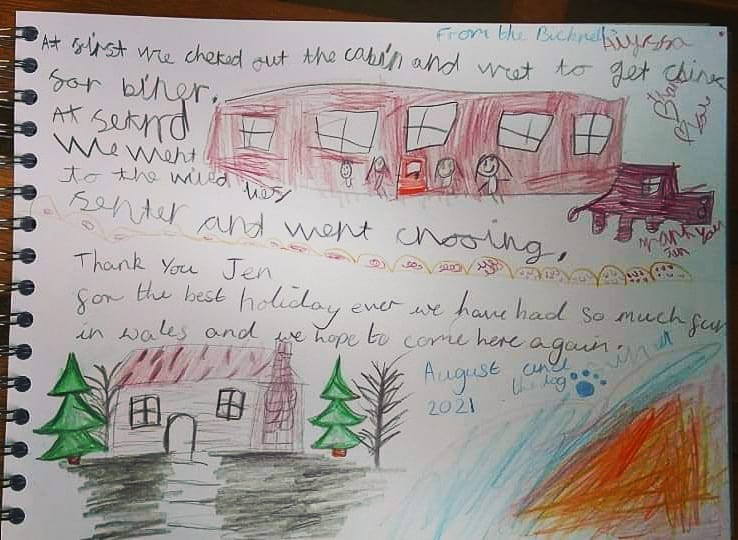 From the Bicknell
Alyssa
At first we cheked out the cabin and wet to get chine
for biner.
thank
you
At seknd
we went
to the wired
senter and went chooing.
thank you
Jen
Thank You Jen
for the best holiday ever we have had so much fun
in wales and we hope to come here again.
August and
the dog
2021